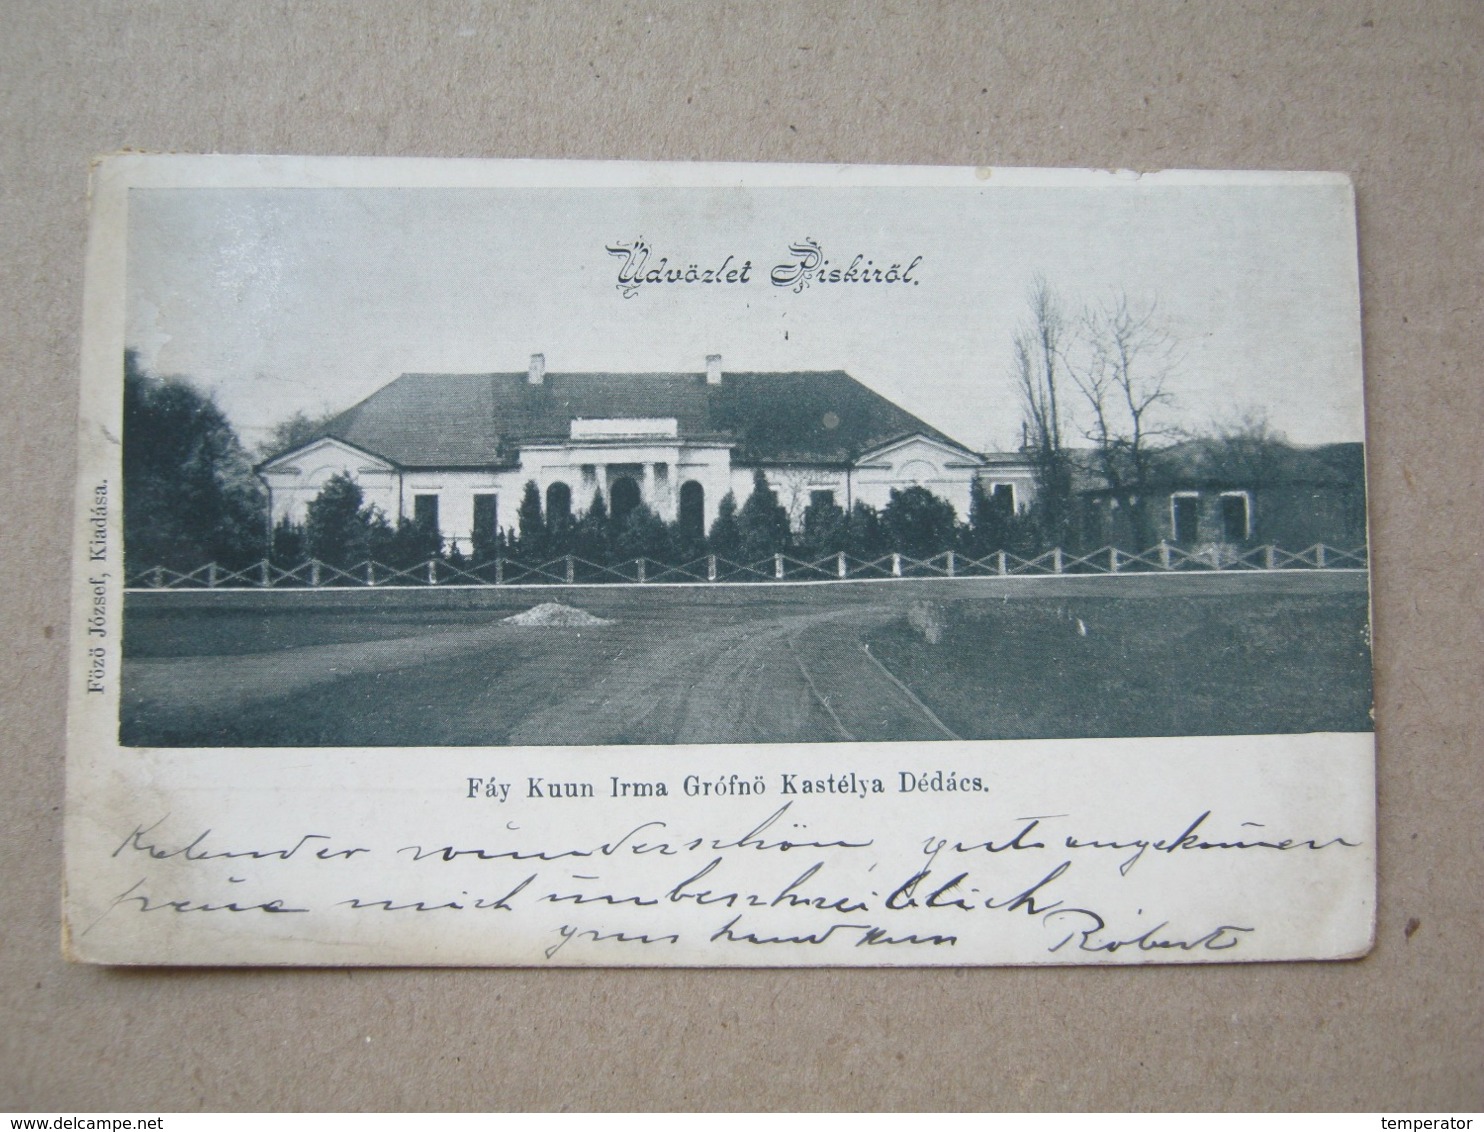 Üdvözlet Piskiröl.
Fözö József, Kiadása.
Fáy Kuun Irma Grófnö Kastélya Dédács.
Kalender wunderschön, gut angekommen
freue mich unbeschreiblich
Gruss Handkuss Robert
www.delcampe.net
temperator